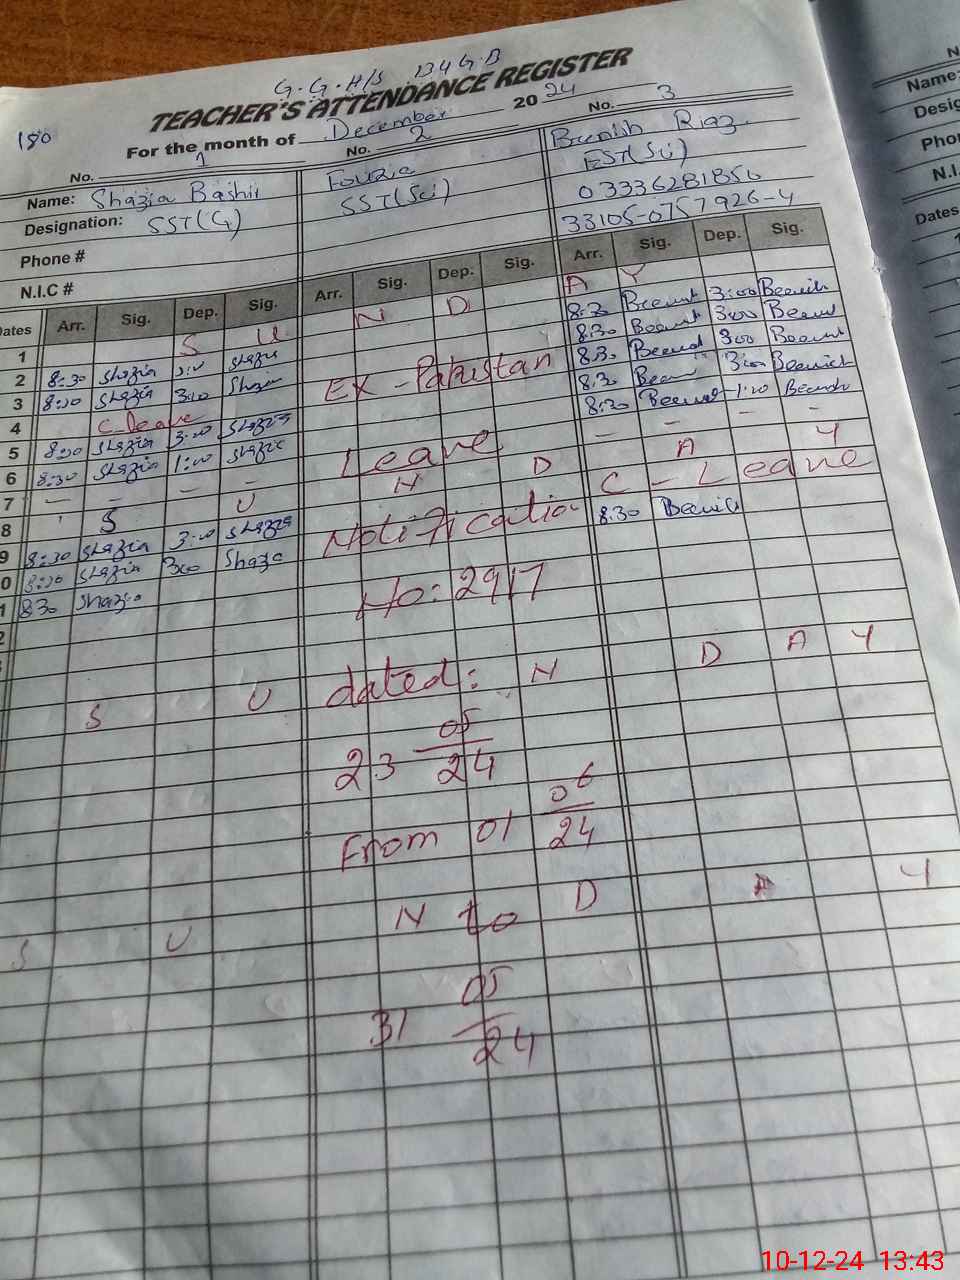 G.G.H/S 134 G.B
TEACHER'S ATTENDANCE REGISTER
180
For the month of December 2024
No. 1 No. 2 No. 3
Name: Shazia Bashir Fouzia Riaz
Designation: SST(G) SST(Sci) EST(Sci)
Phone # 03336281850
N.I.C # 33105-0757926-4
Dates Arr. Sig. Dep. Sig. Arr. Sig. Dep. Sig. Arr. Sig. Dep. Sig.
1 S U N D A Y
2 8:30 Shazia 3:00 Shazia 8:30 3:00
3 8:30 Shazia 3:00 Shazia EX-Pakistan 8:30 3:00
4 C-leave 8:30 3:00
5 8:30 Shazia 3:00 Shazia 8:30 3:00
6 8:30 Shazia 1:00 Shazia Leave 8:30 1:00
7 - - - - - - - -
8 S U N D A Y
9 8:30 Shazia 3:00 Shazia Notification C-Leave
0 8:30 Shazia 3:00 Shazia 8:30
1 8:30 Shazia No: 2917
2
S U dated: N D A Y
23 05/24
From 01 06/24
S U N to D A Y
31 05/24
Name:
Desig
Phon
N.I.
Dates
10-12-24 13:43